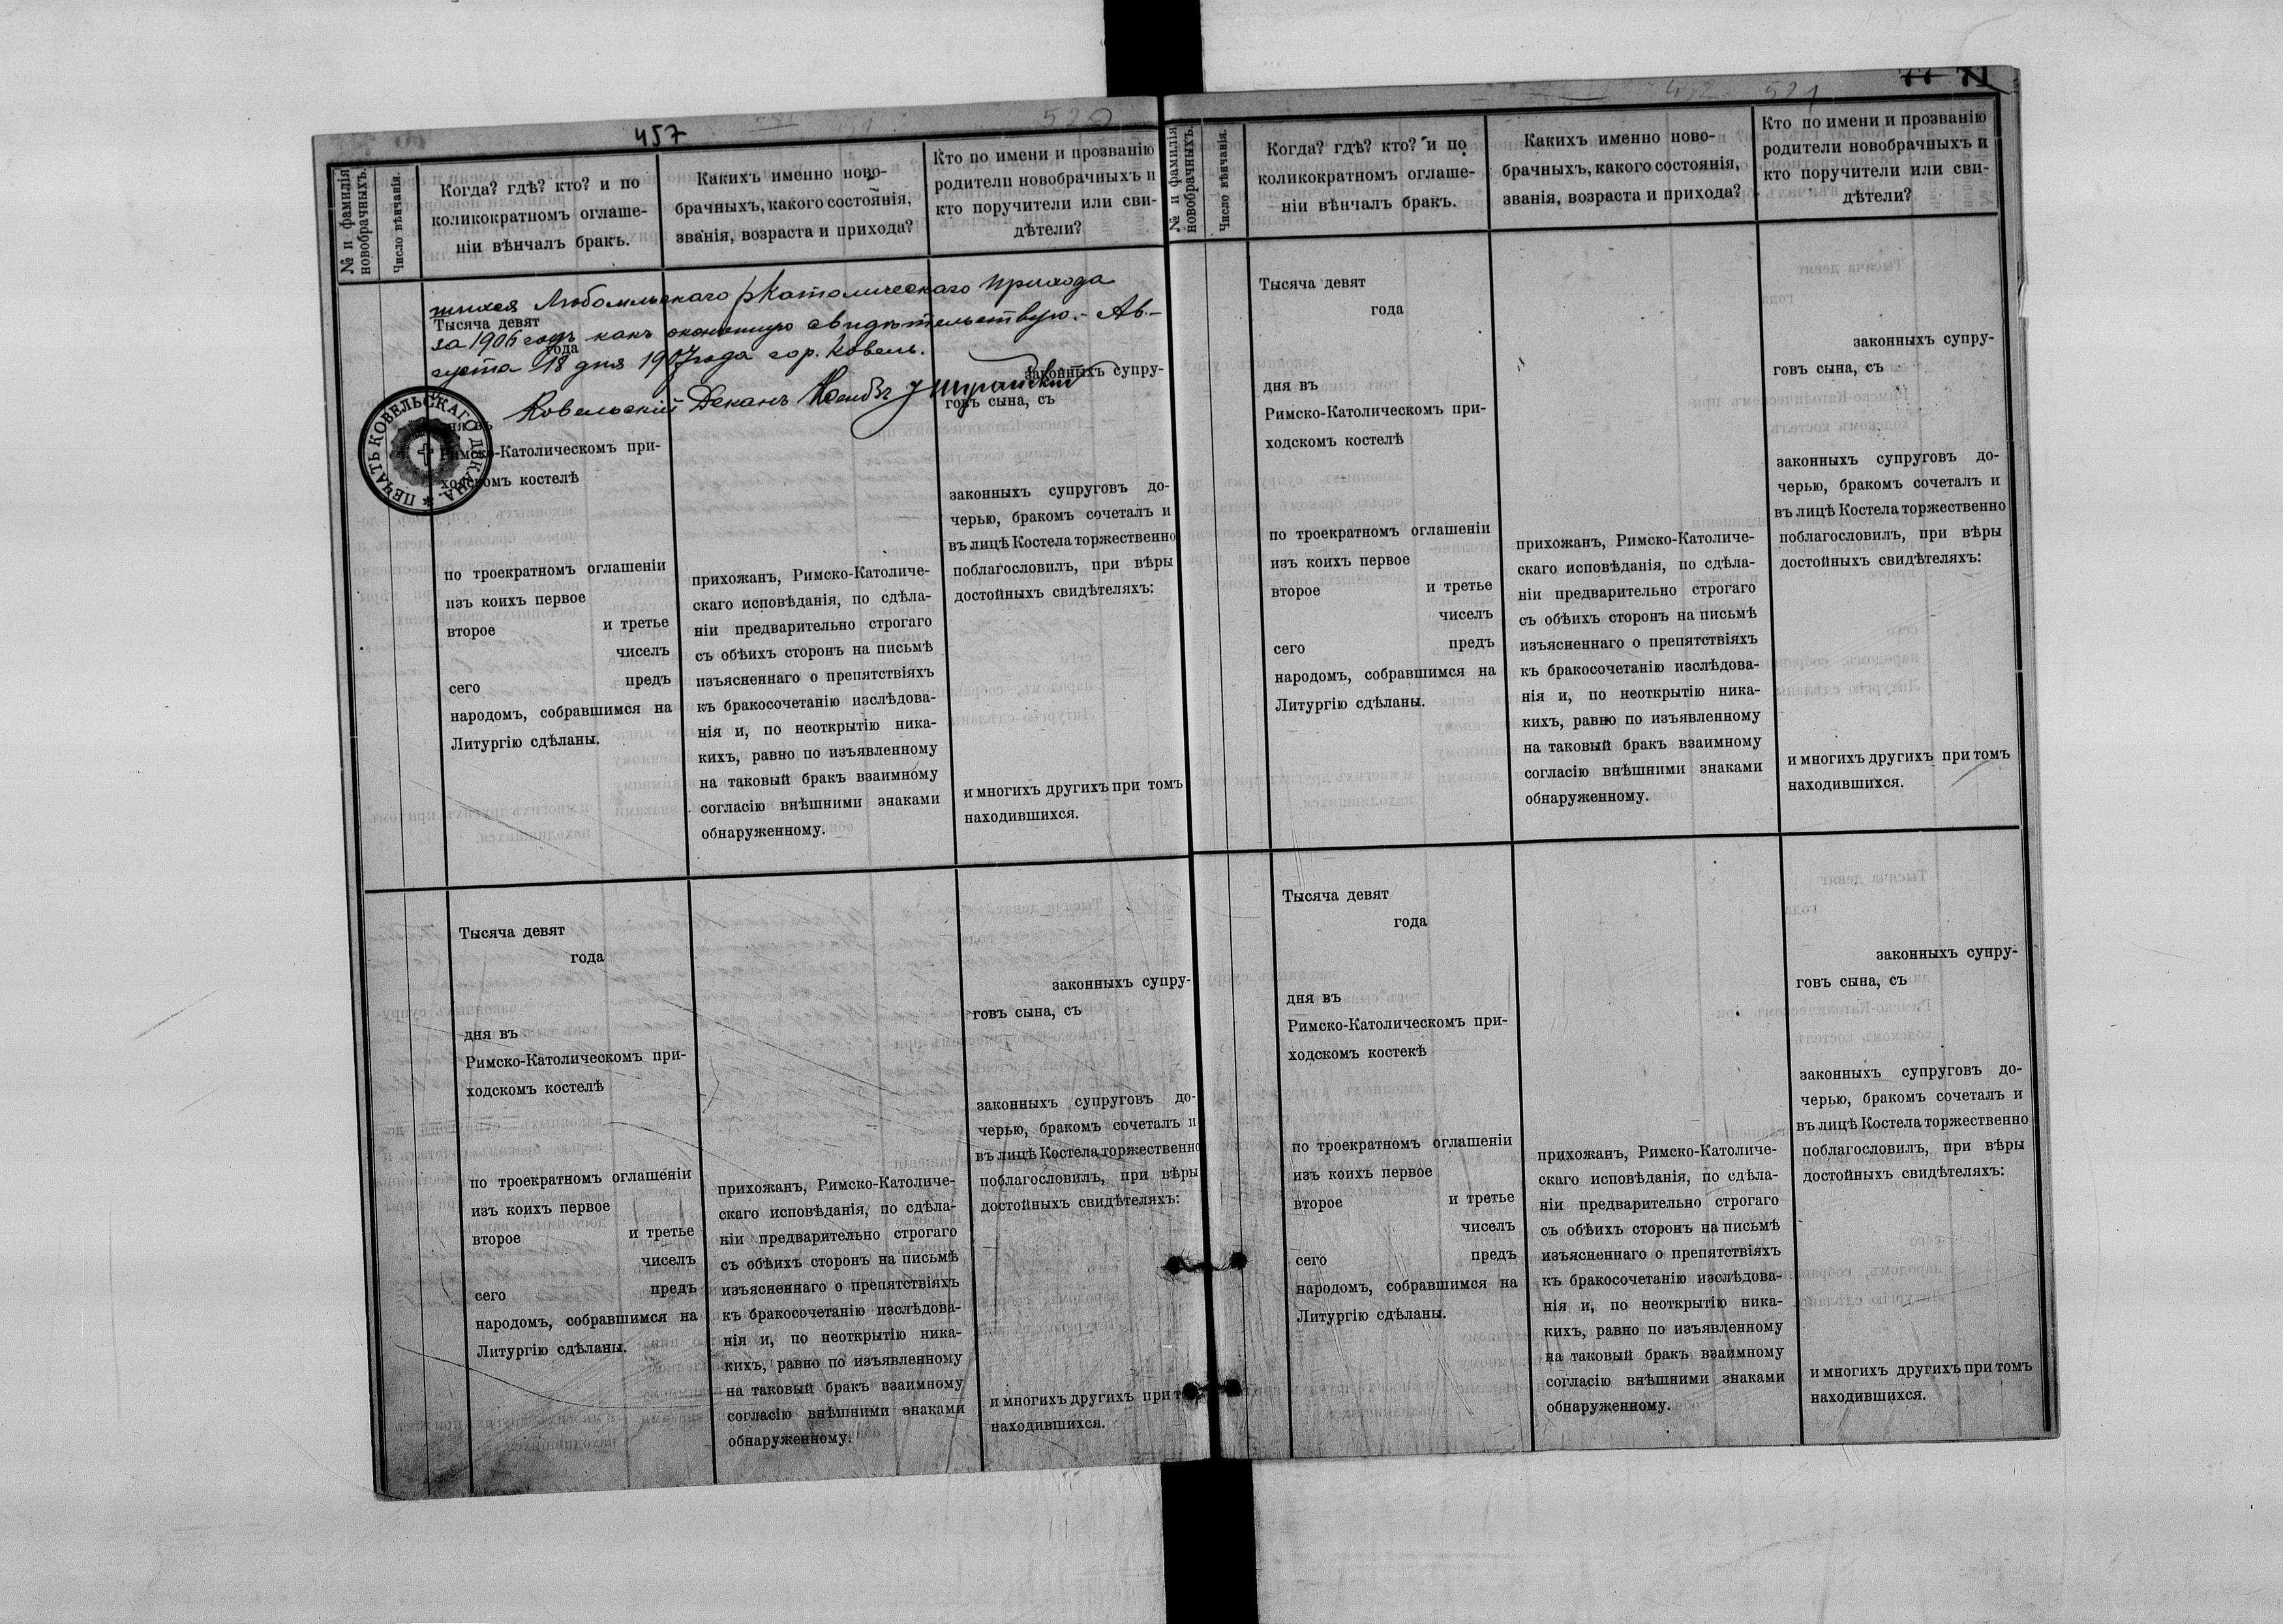 457
520
№ и фамилія
новобрачныхъ.
Число вѣнчанія.
Когда? гдѣ? кто? и по
коликократномъ оглаше-
ніи вѣнчалъ бракъ.
Какихъ именно ново-
брачныхъ, какого состоянія,
званія, возраста и прихода?
Кто по имени и прозванію
родители новобрачныхъ и
кто поручители или сви-
дѣтели?
Любомльскаго р Католическаго прихода
за 1906 годъ какъ свидѣтельствую. - Ав-
густа 18 дня 1907 года гор. Ковель.
Ковельскій Деканъ
ПЕЧАТЬ КОВЕЛЬСКАГО ДЕКАНА.
Тысяча девят
года
дня въ
Римско-Католическомъ при-
ходскомъ костелѣ
по троекратномъ оглашеніи
изъ коихъ первое
второе и третье
чиселъ
сего предъ
народомъ, собравшимся на
Литургію сдѣланы.
прихожанъ, Римско-Католиче-
скаго исповѣданія, по сдѣла-
ніи предварительно строгаго
съ обѣихъ сторонъ на письмѣ
изъясненнаго о препятствіяхъ
къ бракосочетанію изслѣдова-
нія и, по неоткрытію ника-
кихъ, равно по изъявленному
на таковый бракъ взаимному
согласію внѣшними знаками
обнаруженному.
законныхъ супру-
говъ сына, съ
законныхъ супруговъ до-
черью, бракомъ сочеталъ и
въ лицѣ Костела торжественно
поблагословилъ, при вѣры
достойныхъ свидѣтеляхъ:
и многихъ другихъ при томъ
находившихся.
Тысяча девят
года
дня въ
Римско-Католическомъ при-
ходскомъ костелѣ
по троекратномъ оглашеніи
изъ коихъ первое
второе и третье
чиселъ
сего предъ
народомъ, собравшимся на
Литургію сдѣланы.
прихожанъ, Римско-Католиче-
скаго исповѣданія, по сдѣла-
ніи предварительно строгаго
съ обѣихъ сторонъ на письмѣ
изъясненнаго о препятствіяхъ
къ бракосочетанію изслѣдова-
нія и, по неоткрытію ника-
кихъ, равно по изъявленному
на таковый бракъ взаимному
согласію внѣшними знаками
обнаруженному.
законныхъ супру-
говъ сына, съ
законныхъ супруговъ до-
черью, бракомъ сочеталъ и
въ лицѣ Костела торжественно
поблагословилъ, при вѣры
достойныхъ свидѣтеляхъ:
и многихъ другихъ при т
находившихся.
521
77 71
№ и фамилія
новобрачныхъ.
Число вѣнчанія.
Когда? гдѣ? кто? и по
коликократномъ оглаше-
ніи вѣнчалъ бракъ.
Какихъ именно ново-
брачныхъ, какого состоянія,
званія, возраста и прихода?
Кто по имени и прозванію
родители новобрачныхъ и
кто поручители или сви-
дѣтели?
Тысяча девят
года
дня въ
Римско-Католическомъ при-
ходскомъ костелѣ
по троекратномъ оглашеніи
изъ коихъ первое
второе и третье
чиселъ
сего предъ
народомъ, собравшимся на
Литургію сдѣланы.
прихожанъ, Римско-Католиче-
скаго исповѣданія, по сдѣла-
ніи предварительно строгаго
съ обѣихъ сторонъ на письмѣ
изъясненнаго о препятствіяхъ
къ бракосочетанію изслѣдова-
нія и, по неоткрытію ника-
кихъ, равно по изъявленному
на таковый бракъ взаимному
согласію внѣшними знаками
обнаруженному.
законныхъ супру-
говъ сына, съ
законныхъ супруговъ до-
черью, бракомъ сочеталъ и
въ лицѣ Костела торжественно
поблагословилъ, при вѣры
достойныхъ свидѣтеляхъ:
и многихъ другихъ при томъ
находившихся.
Тысяча девят
года
дня въ
Римско-Католическомъ при-
ходскомъ костекѣ
по троекратномъ оглашеніи
изъ коихъ первое
второе и третье
чиселъ
сего предъ
народомъ, собравшимся на
Литургію сдѣланы.
прихожанъ, Римско-Католиче-
скаго исповѣданія, по сдѣла-
ніи предварительно строгаго
съ обѣихъ сторонъ на письмѣ
изъясненнаго о препятствіяхъ
къ бракосочетанію изслѣдова-
нія и, по неоткрытію ника-
кихъ, равно по изъявленному
на таковый бракъ взаимному
согласію внѣшними знаками
обнаруженному.
законныхъ супру-
говъ сына, съ
законныхъ супруговъ до-
черью, бракомъ сочеталъ и
въ лицѣ Костела торжественно
поблагословилъ, при вѣры
достойныхъ свидѣтеляхъ:
и многихъ другихъ при томъ
находившихся.